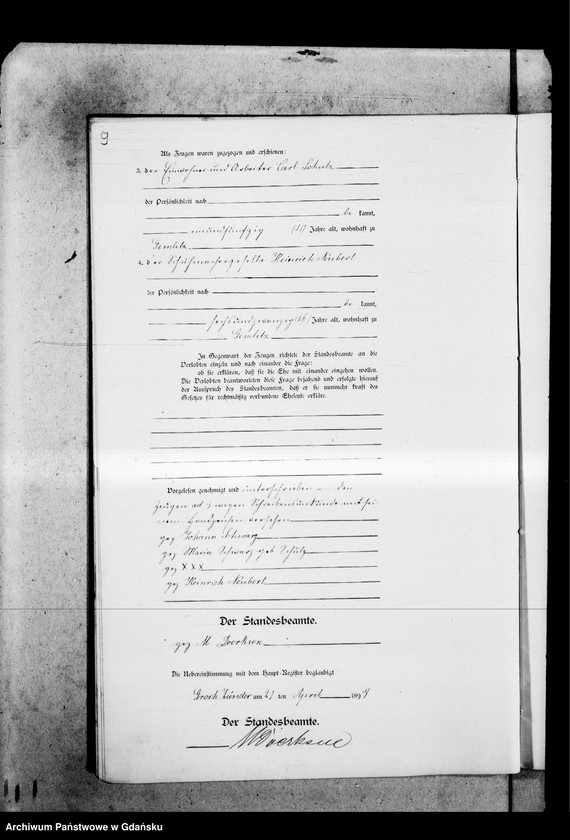 9
Als Zeugen waren zugezogen und erschienen:
3. der Einwohner und Arbeiter Carl Schulz
der Persönlichkeit nach
be kannt,
neunundfünfzig (59) Jahre alt, wohnhaft zu
Gemlitz
4. der Schuhmachergeselle Heinrich Neubert
der Persönlichkeit nach
be kannt,
sechsundzwanzig (26) Jahre alt, wohnhaft zu
Gemlitz
In Gegenwart der Zeugen richtete der Standesbeamte an die
Verlobten einzeln und nach einander die Frage:
ob sie erklären, daß sie die Ehe mit einander eingehen wollen.
Die Verlobten beantworteten diese Frage bejahend und erfolgte hierauf
der Ausspruch des Standesbeamten, daß er sie nunmehr kraft des
Gesetzes für rechtmäßig verbundene Eheleute erkläre.
Vorgelesen, genehmigt und unterschrieben den
Zeugen ad 3 wegen Schreibensunkunde mit sei
nem Handzeichen versehen
gez Johann Schwarz
gez Maria Schwarz geb Schulz
gez x x x
gez Heinrich Neubert
Der Standesbeamte.
gez M Doerksen
Die Uebereinstimmung mit dem Haupt-Register beglaubigt
Grosk Zünder am 21 ten April 1894
Der Standesbeamte.
M Doerksen
Archiwum Państwowe w Gdańsku